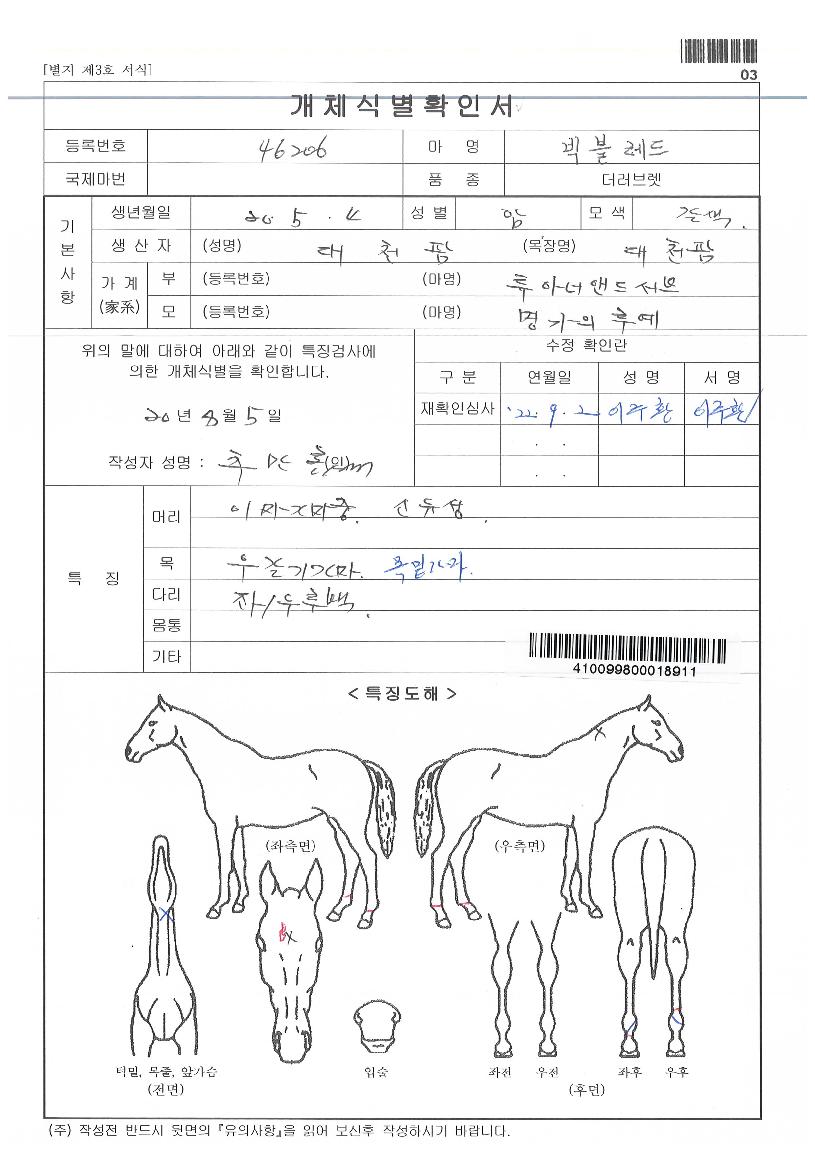 03
[별지 제3호 서식]
개체식별확인서
등록번호 46206 마 명 빅블레드
국제마번 품 종 더러브렛
기본사항
생년월일 20. 5 . 4 성 별 암 모 색 갈색.
생 산 자 (성명) 대천팜 (목장명) 대천팜
가 계 (家系) 부 (등록번호) (마명) 투아너앤드서브
모 (등록번호) (마명) 명가의후예
위의 말에 대하여 아래와 같이 특징검사에
의한 개체식별을 확인합니다.
20년 8월 5일
작성자 성명 : (인)
수정 확인란
구 분 연월일 성 명 서 명
재확인심사 '22. 9. 2 이주환 이주환
. .
. .
특 징
머리
목 우줄기가마. 목밑가마.
다리 좌/우후백.
몸통
기타
410099800018911
< 특징도해 >
(좌측면) (우측면)
턱밑, 목줄, 앞가슴
(전면)
입술
좌전 우전 좌후 우후
(후면)
(주) 작성전 반드시 뒷면의 『유의사항』을 읽어 보신후 작성하시기 바랍니다.